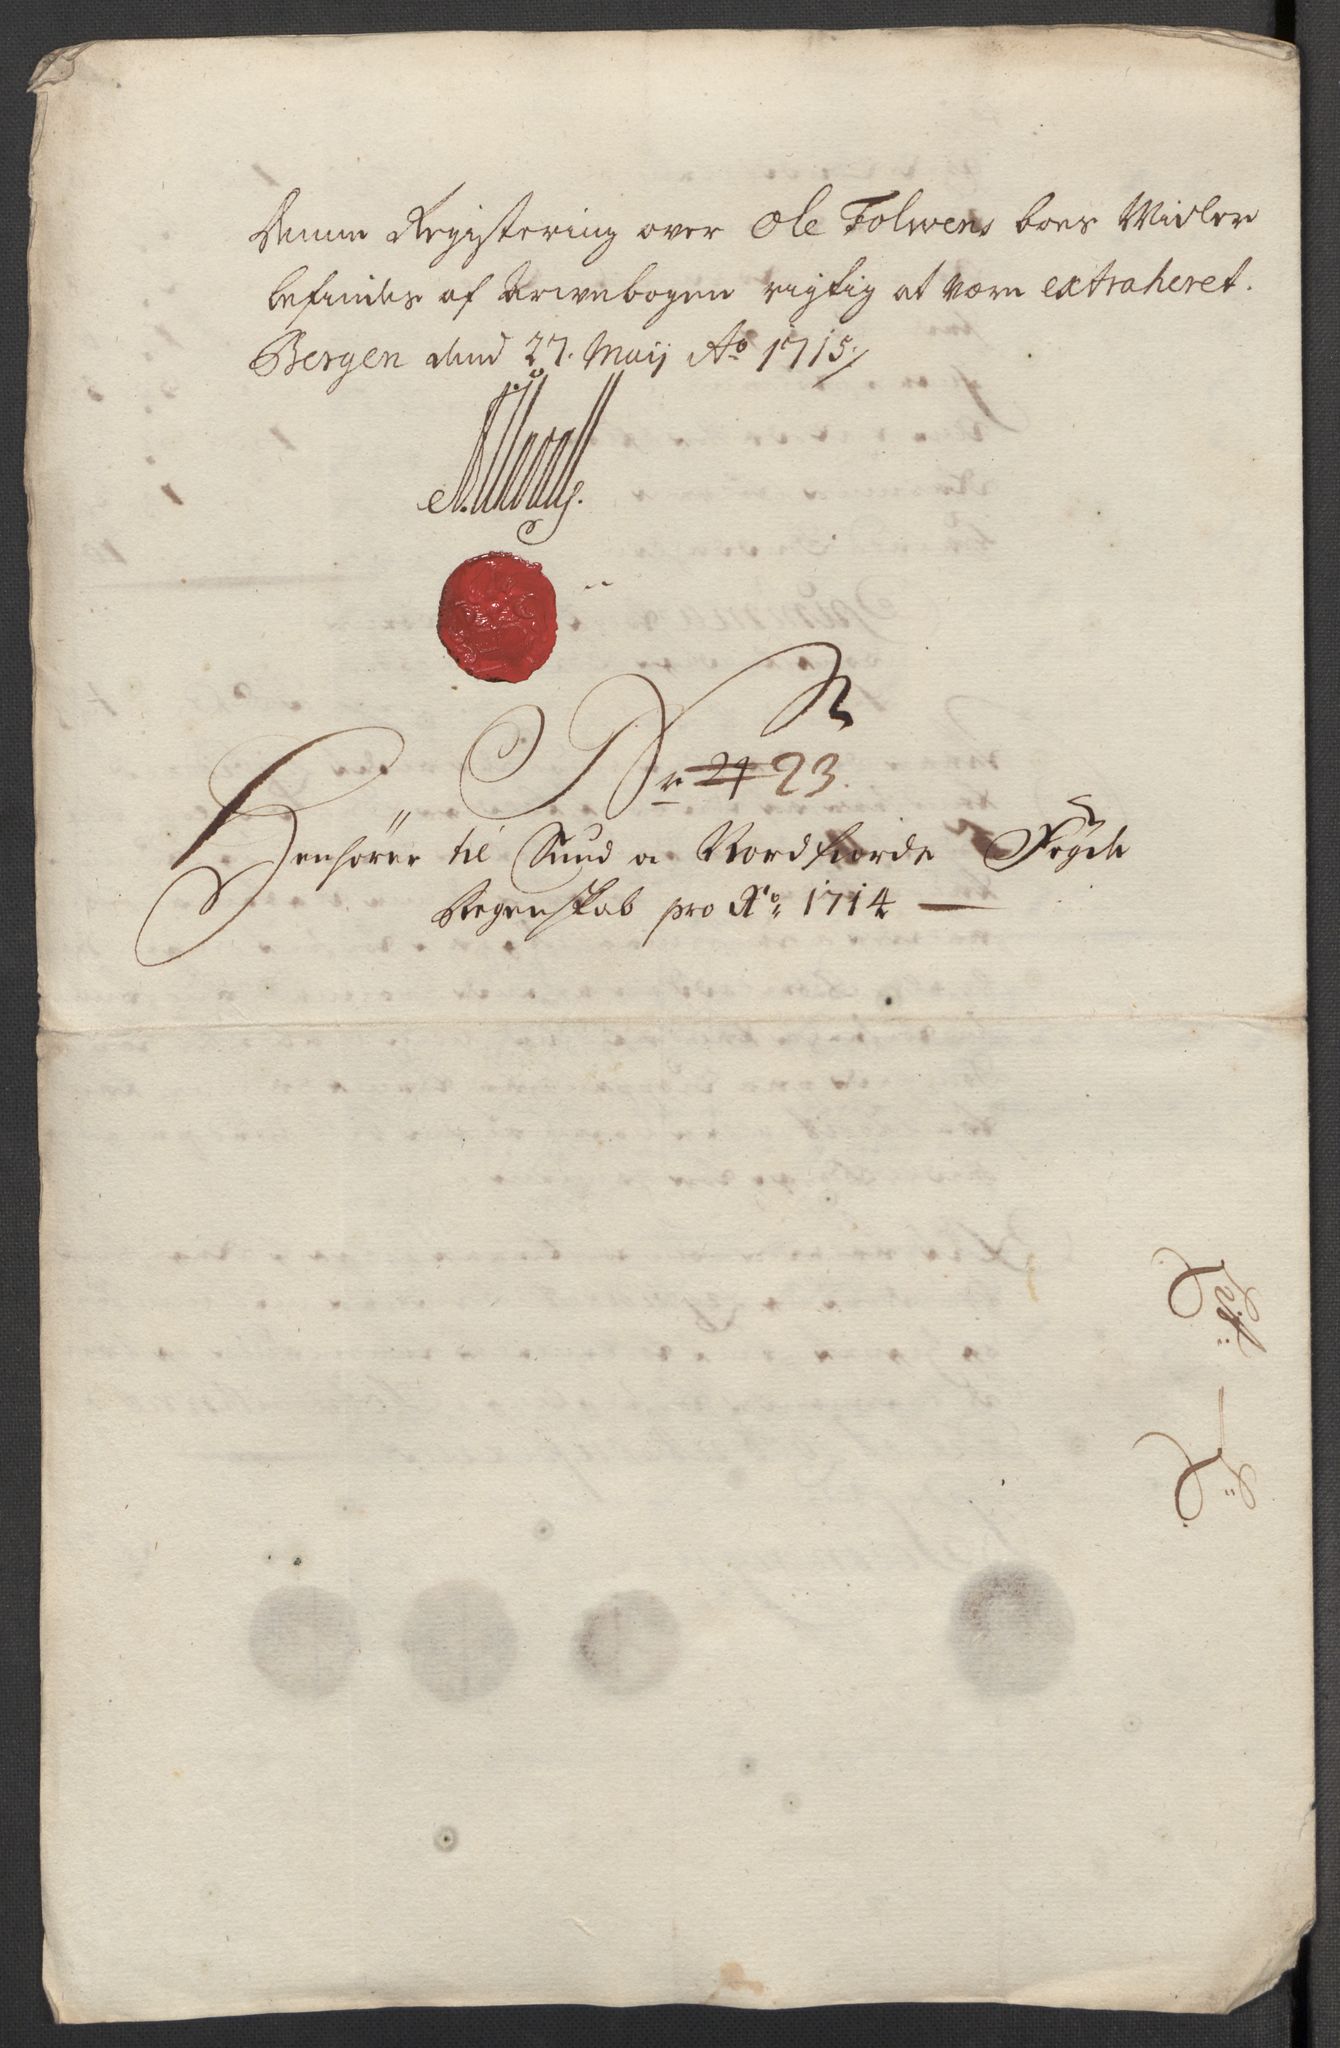 Denne Registering over Ole Folwens boes Midler
befindes af Arwebogen rigtig at være extraheret.
Bergen dend 27. Maij Ao 1715
N
Nr 24 23.
Henhører til Sund o Nordfiords Fogde
Regenskab pro Ao 1714